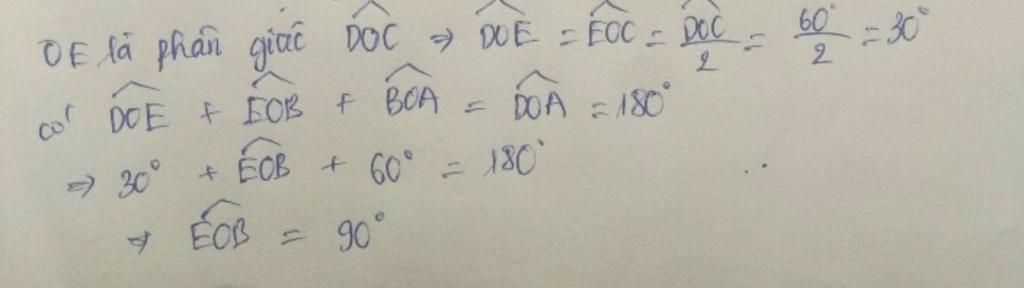 OE là phân giác $\widehat{DOC}$ ⇒ $\widehat{DOE}$ = $\widehat{EOC}$ = $\frac{\widehat{DOC}}{2}$ = $\frac{60°}{2}$ = 30°
có $\widehat{DOE}$ + $\widehat{EOB}$ + $\widehat{BOA}$ = $\widehat{DOA}$ = 180°
⇒ 30° + $\widehat{EOB}$ + 60° = 180°
⇒ $\widehat{EOB}$ = 90°